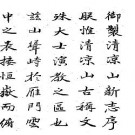 御製清涼山新志序
朕惟清涼山古稱文
殊大士演教之區也
茲山聳峙於雁門雲
中之表接恒嶽而俯